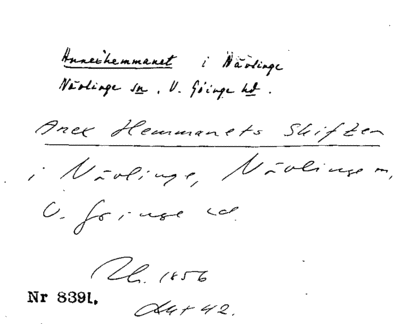 Annexhemmanet i Nävlinge
Nävlinge sn, V. Göinge hd.
Anex Hemmanets Skiften
i Nävlinge, Nävlinge sn,
V. Göinge hd.
1856
Nr 8391.